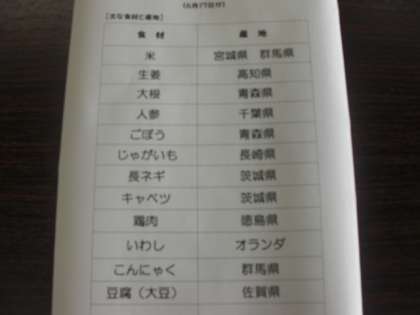 (6月17日分)
[主な食材と産地]
食材 産地
米 宮城県 群馬県
生姜 高知県
大根 青森県
人参 千葉県
ごぼう 青森県
じゃがいも 長崎県
長ネギ 茨城県
キャベツ 茨城県
鶏肉 徳島県
いわし オランダ
こんにゃく 群馬県
豆腐（大豆） 佐賀県